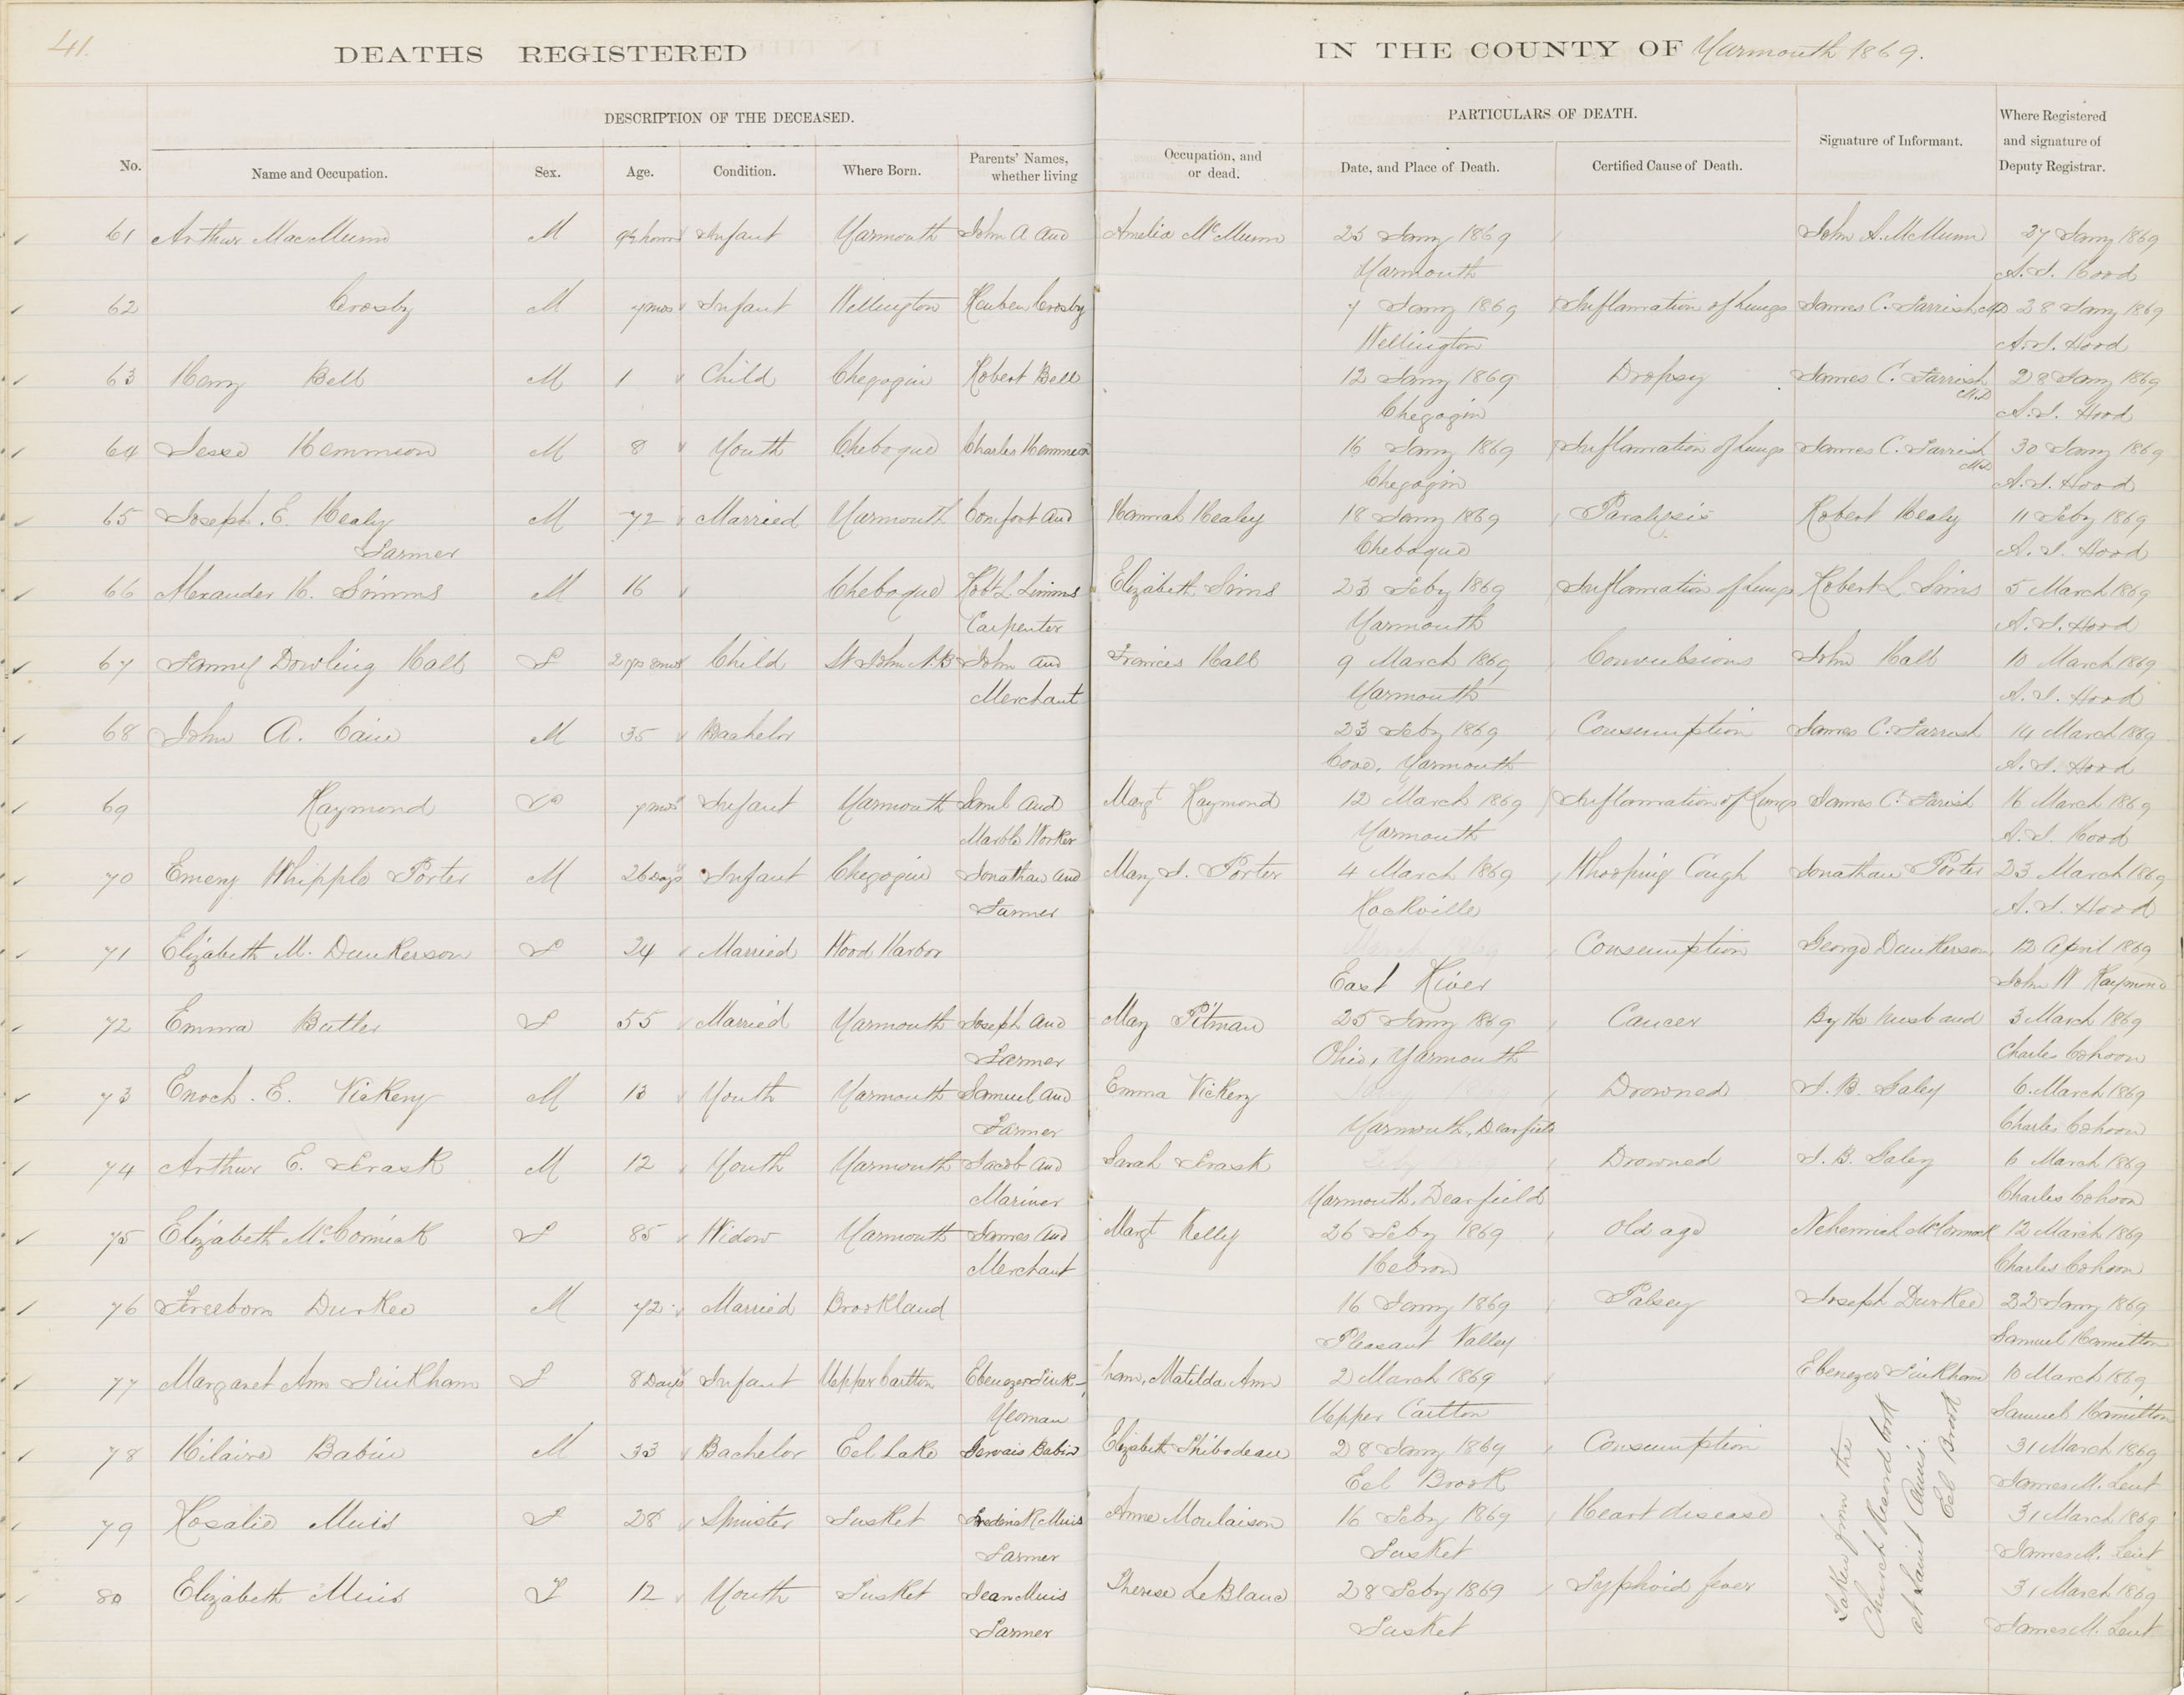 41.
DEATHS REGISTERED IN THE COUNTY OF Yarmouth 1869.
DESCRIPTION OF THE DECEASED. PARTICULARS OF DEATH.
No. Name and Occupation. Sex. Age. Condition. Where Born. Parents' Names, whether living Occupation, and or dead. Date, and Place of Death. Certified Cause of Death. Signature of Informant. Where Registered and signature of Deputy Registrar.
61 Arthur MacMunn M hours Infant Yarmouth John A and Amelia McMunn 25 Jany 1869 John A. McMunn 27 Jany 1869
Yarmouth A. J. Hood
62 Crosby M 7 mos Infant Wellington Reuben Crosby 7 Jany 1869 Inflamation of Lungs James C. Farrish MD 28 Jany 1869
Wellington A. J. Hood
63 Henry Bell M 1 Child Chegogin Robert Bell 12 Jany 1869 Dropsy James C. Farrish MD 28 Jany 1869
Chegogin A. J. Hood
64 Jesse Hemmeon M 8 Youth Chebogue Charles Hemmeon 16 Jany 1869 Inflamation of Lungs James C. Farrish MD 30 Jany 1869
Chegogin A. J. Hood
65 Joseph. E. Healy M 72 Married Yarmouth Comfort and Hannah Healey 18 Jany 1869 Paralysis Robert Healy 11 Feby 1869
Farmer Chebogue A. J. Hood
66 Alexander H. Simms M 16 Chebogue Robt L Simms Elizabeth Sims 23 Feby 1869 Inflamation of Lungs Robert L Sims 5 March 1869
Carpenter Yarmouth A. J. Hood
67 Fanny Dowling Hall F 2 yrs 8 mos Child St John N.B John and Frances Hall 9 March 1869 Convulsions John Hall 10 March 1869
Merchant Yarmouth A. J. Hood
68 John A. Cain M 35 Bachelor 23 Feby 1869 Consumption James C. Farrish 14 March 1869
Cove, Yarmouth A. J. Hood
69 Raymond 7 mos Infant Yarmouth Saml and Margt Raymond 12 March 1869 Inflamation of Lungs James C. Farish 16 March 1869
Marble Worker Yarmouth A. J. Hood
70 Emery Whipple Porter M 26 Days Infant Chegogin Jonathan and Mary J. Porter 4 March 1869 Whooping Cough Jonathan Porter 23 March 1869
Farmer Rockville A. J. Hood
71 Elizabeth M. Dunkerson F 24 Married Wood Harbor March 1869 Consumption George Dunkerson 12 April 1869
East River John W Raymond
72 Emma Butler F 55 Married Yarmouth Joseph and Mary Pitman 25 Jany 1869 Cancer By the husband 3 March 1869
Farmer Ohio, Yarmouth Charles Cohoon
73 Enoch. E. Vickery M 13 Youth Yarmouth Samuel and Emma Vickery Drowned J. B. Galey 6. March 1869
Farmer Yarmouth, Dearfield Charles Cohoon
74 Arthur E. Trask M 12 Youth Yarmouth Jacob and Sarah Trask Drowned J. B. Galey 6 March 1869
Mariner Yarmouth, Dearfield Charles Cohoon
75 Elizabeth McCormick F 85 Widow Yarmouth James and Margt Kelly 26 Feby 1869 Old age Nehemiah McCormack 12 March 1869
Merchant Hebron Charles Cohoon
76 Freeborn Durkee M 72 Married Brookland 16 Jany 1869 Palsey Joseph Durkee 22 Jany 1869
Pleasant Valley Samuel Hamilton
77 Margaret Ann Tinkham F 8 Days Infant Upper Carlton Ebenezer Tink- ham, Matilda Ann 2 March 1869 Ebenezer Tinkham 10 March 1869
Yeoman Upper Carlton Samuel Hamilton
78 Hilaire Babin M 33 Bachelor Eel Lake Gervais Babin Elizabeth Thibodeau 28 Jany 1869 Consumption 31 March 1869
Eel Brook James M. Lent
79 Rosalie Muis F 28 Spinster Tusket Frederick Muis Anne Moulaison 16 Feby 1869 Heart disease 31 March 1869
Farmer Tusket James M. Lent
80 Elizabeth Muis F 12 Youth Tusket Jean Muis Therese LeBlanc 28 Feby 1869 Typhoid fever 31 March 1869
Farmer Tusket James M. Lent
Taken from the
Church Record book
at Saint Anns.
Eel Brook